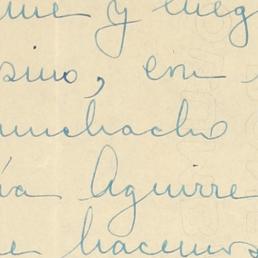 me y lueg
sino, con
muchacho
ía Aguirre
e hacemos